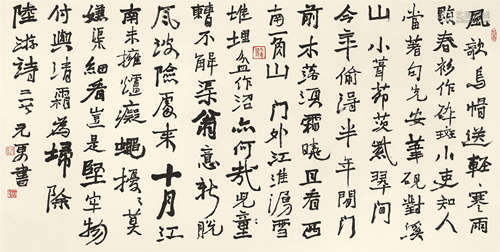 風欹烏帽送輕寒雨
點春衫作碎斑小吏知人
當著句先安筆硯對溪
山 小葺茆茨紫翠間
今年偷得半年閒門
前木落須霜曉且看西
南一角山 門外江濺雪
堆埋盆作沼亦何哉兒童
不解渠翁意新脫
風波險處來 十月江
南未擁爐癡蠅擾擾莫
嫌渠細看豈是堅牢物
付與清霜為掃除
陸游詩 書